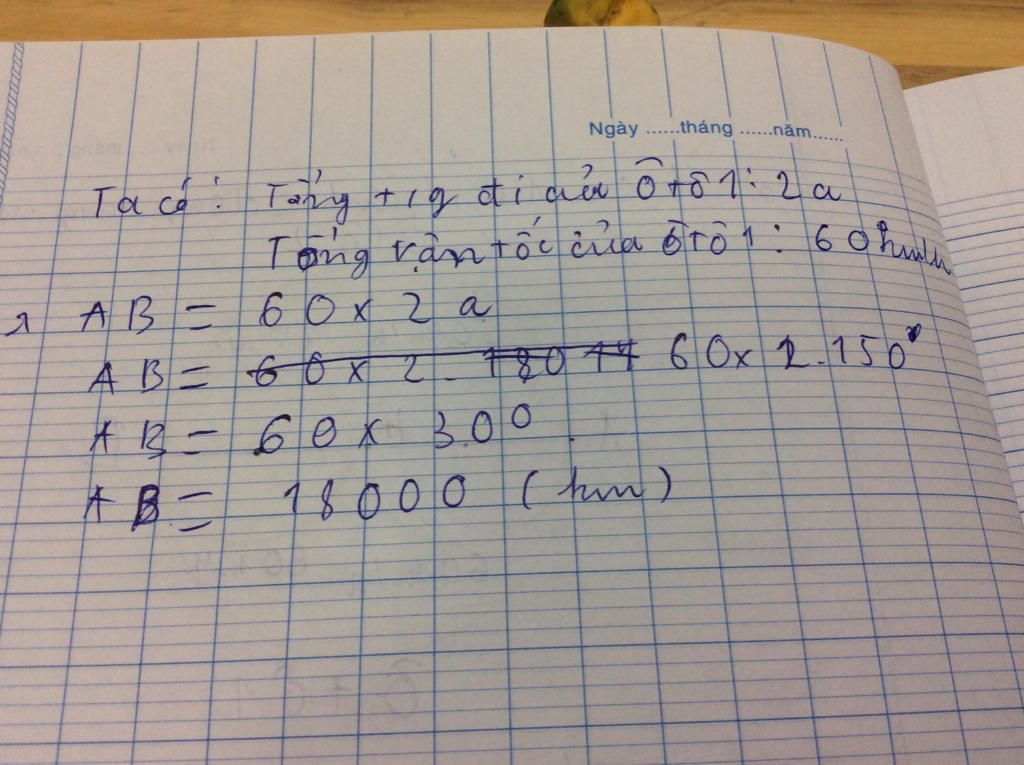 Ngày ......tháng ......năm......
Ta có : Tổng + ig đi của Ô tô 1 : 2 a
Tổng vận tốc của Ô tô 1 : 60 km/h
AB = 60 x 2 a
AB = 60 x 2 . 180 60 x 2 . 150
AB = 60 x 300
AB = 18000 (km)